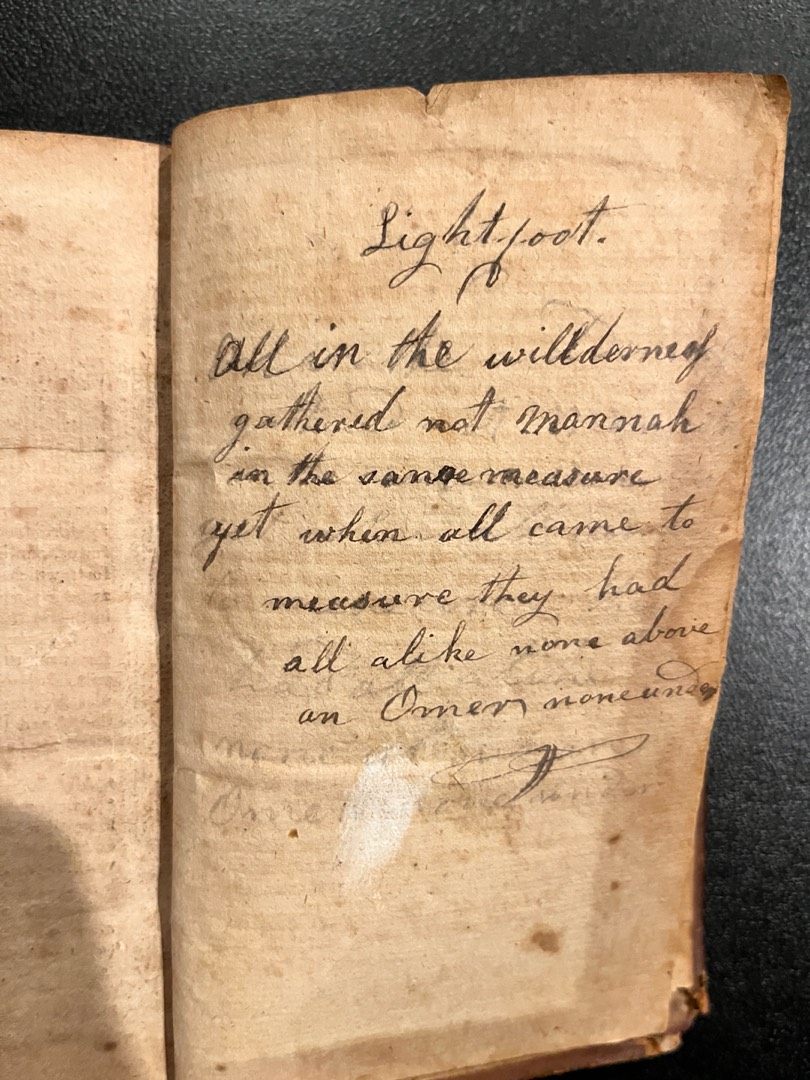 Lightfoot.
All in the willderness
gathered not mannah
in the same measure
yet when all came to
measure they had
all alike none above
an Omer none under
none
Omer none under